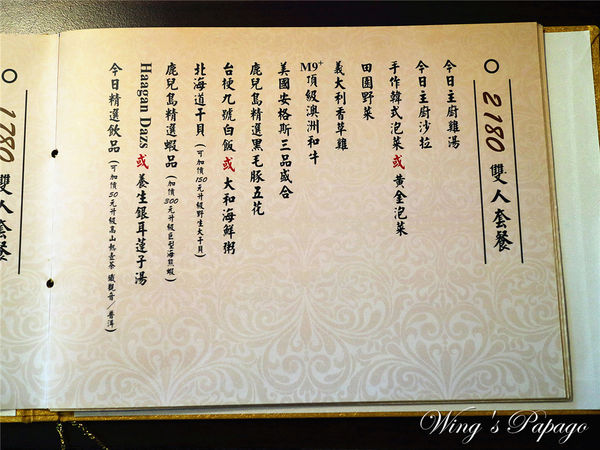 2180 雙人套餐
今日主廚雞湯
今日主廚沙拉
手作韓式泡菜或黃金泡菜
田園野菜
義大利香草雞
M9+頂級澳洲和牛
美國安格斯三品盛合
鹿兒島精選黑毛豚五花
台梗九號白飯或大和海鮮粥
北海道干貝(可加價150元升級野生大干貝)
鹿兒島精選蝦品(加價300元升級巨型海熊蝦)
Haagan Dazs 或養生銀耳蓮子湯
今日精選飲品(可加價50元升級高山熱壺茶 鐵觀音/普洱)
1780 雙人套餐
Wing's Papago